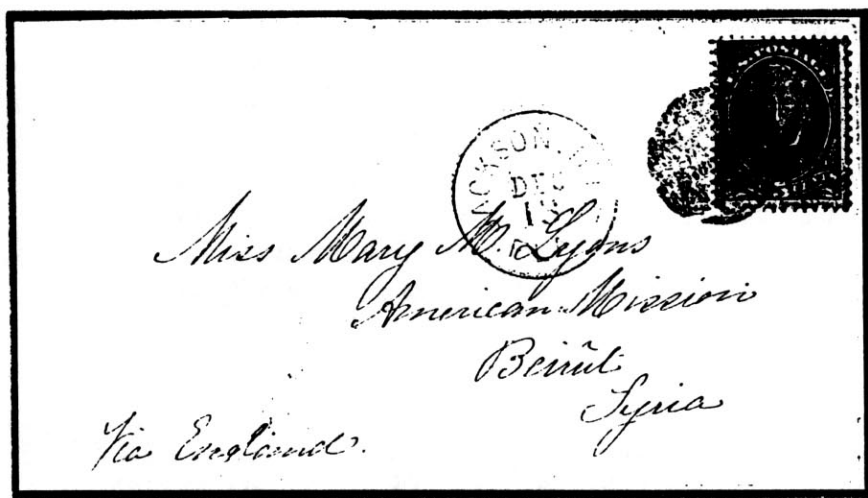 U.S. POSTAGE
JACKSON,
DEC
15
Miss Mary M. Lyons
American Mission
Beirût
Syria
Via England.